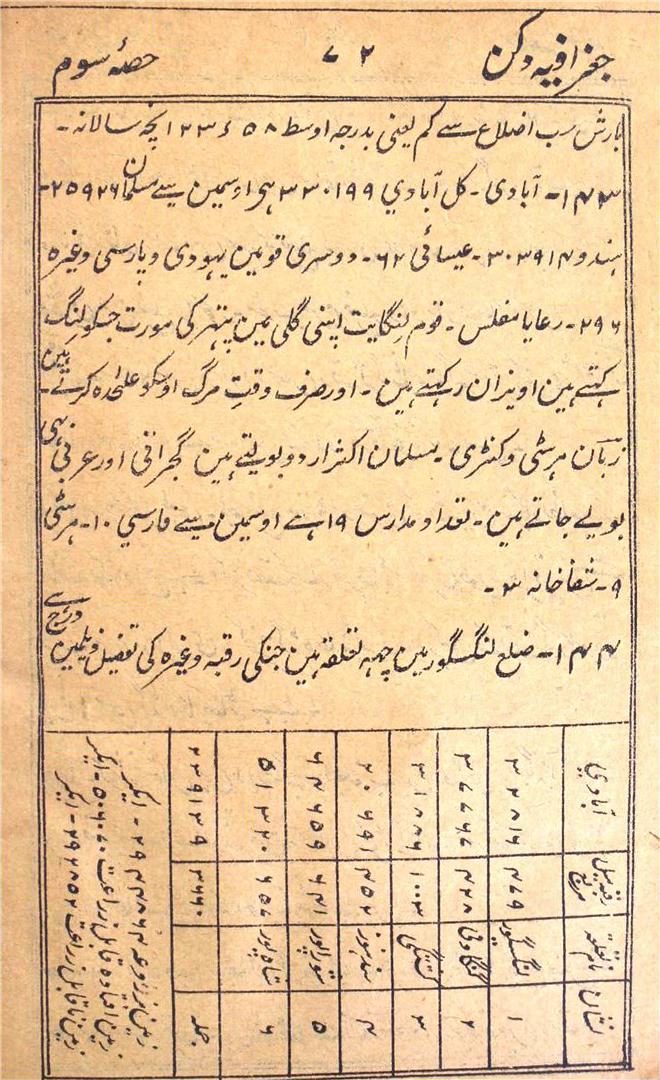 جغرافیہ دکن ۷۲ حصۂ سوم
بارش سب اضلاع سے کم یعنی بدرجہ اوسط ۵۸ء۲۳ انچہ سالانہ۔
۱۴۳۔ آبادی۔ کل آبادی ۳۳۰۱۹۹ ہی اوسمین سے مسلمان ۲۵۹۲۶۔
ہندو ۳۰۳۹۱۴۔ عیسائی ۶۲۔ دوسری قومین یہودی و پارسی وغیرہ
۲۹۶۔ رعایا مفلس۔ قوم لنگایت اپنی گلی مین پتہر کی مورت جسکو لنگ
کہتے ہین اویزان رکہتے ہین۔ اور صرف وقتِ مرگ اوسکو علحدہ کرتے ہین۔
زبان مرہٹی و کنٹری۔ مسلمان اکثر اردو بولتے ہین گجراتی اور عربی بہی
بولے جاتے ہین۔ تعداد مدارس ۱۹ ہے اوسمین سے فارسی ۱۰۔ مرہٹی
۹۔ شفاخانہ ۳۔
۱۴۴۔ ضلع لنگسگور مین چہہ تعلقہ ہین جنکی رقبہ وغیرہ کی تفصیل ذیلمین درج ہے
نشان نام تعلقہ رقبہ میل مربع آبادی
۱ لنگسگور
۲ گنگاوتی
۳ کشتگی ۱۰۰۳
۴ سندہنور ۴۵۲
۵ شوراپور ۶۴۱
۶ شاہ پور ۶۵۶ ۵۱۳۲۰
جملہ
زمین مزروعہ ایکر
زمین افتادہ قابل زراعت ایکر
زمین ناقابل زراعت ایکر